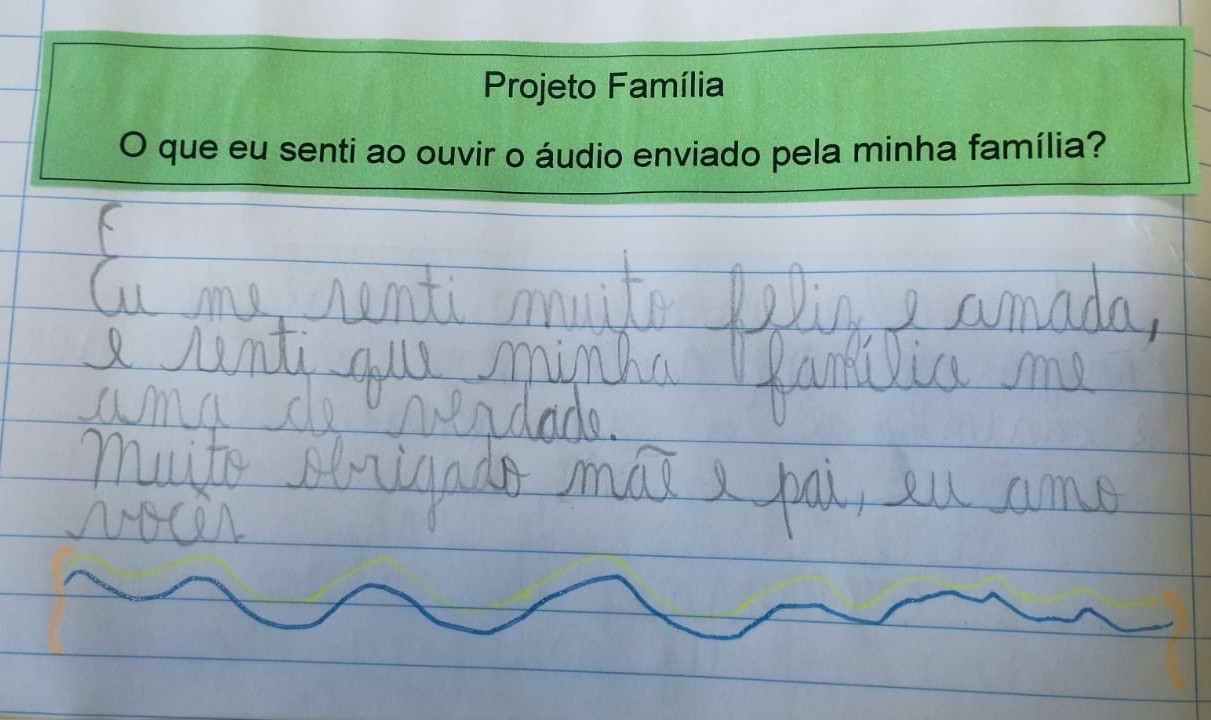 Projeto Família
O que eu senti ao ouvir o áudio enviado pela minha família?
E
Eu me senti muito feliz e amada,
e senti que minha família me
ama de verdade.
Muito obrigado mãe e pai, eu amo
vocês